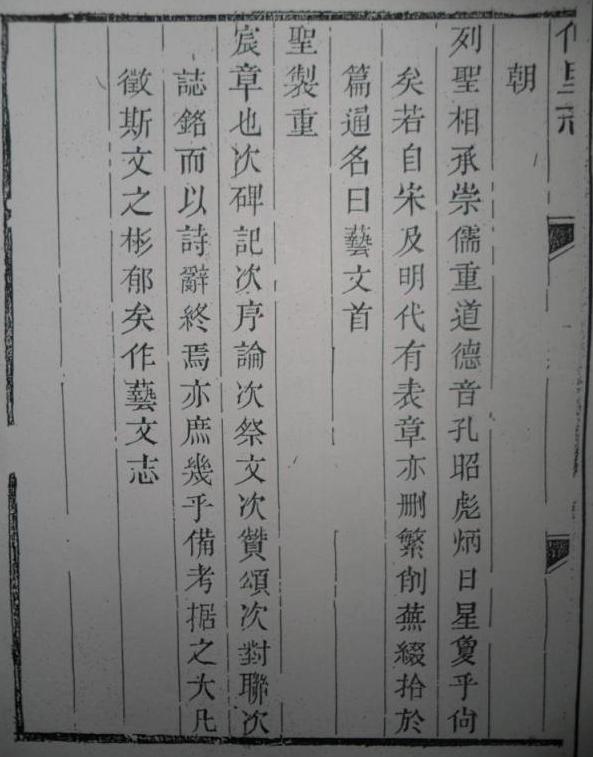 朝
列聖相承崇儒重道德音孔昭彪炳日星敻乎尙
矣若自宋及明代有表章亦刪繁削蕪綴拾於
篇通名曰藝文首
聖製重
宸章也次碑記次序論次祭文次贊頌次對聯次
誌銘而以詩辭終焉亦庶幾乎備考据之大凡
徵斯文之彬郁矣作藝文志